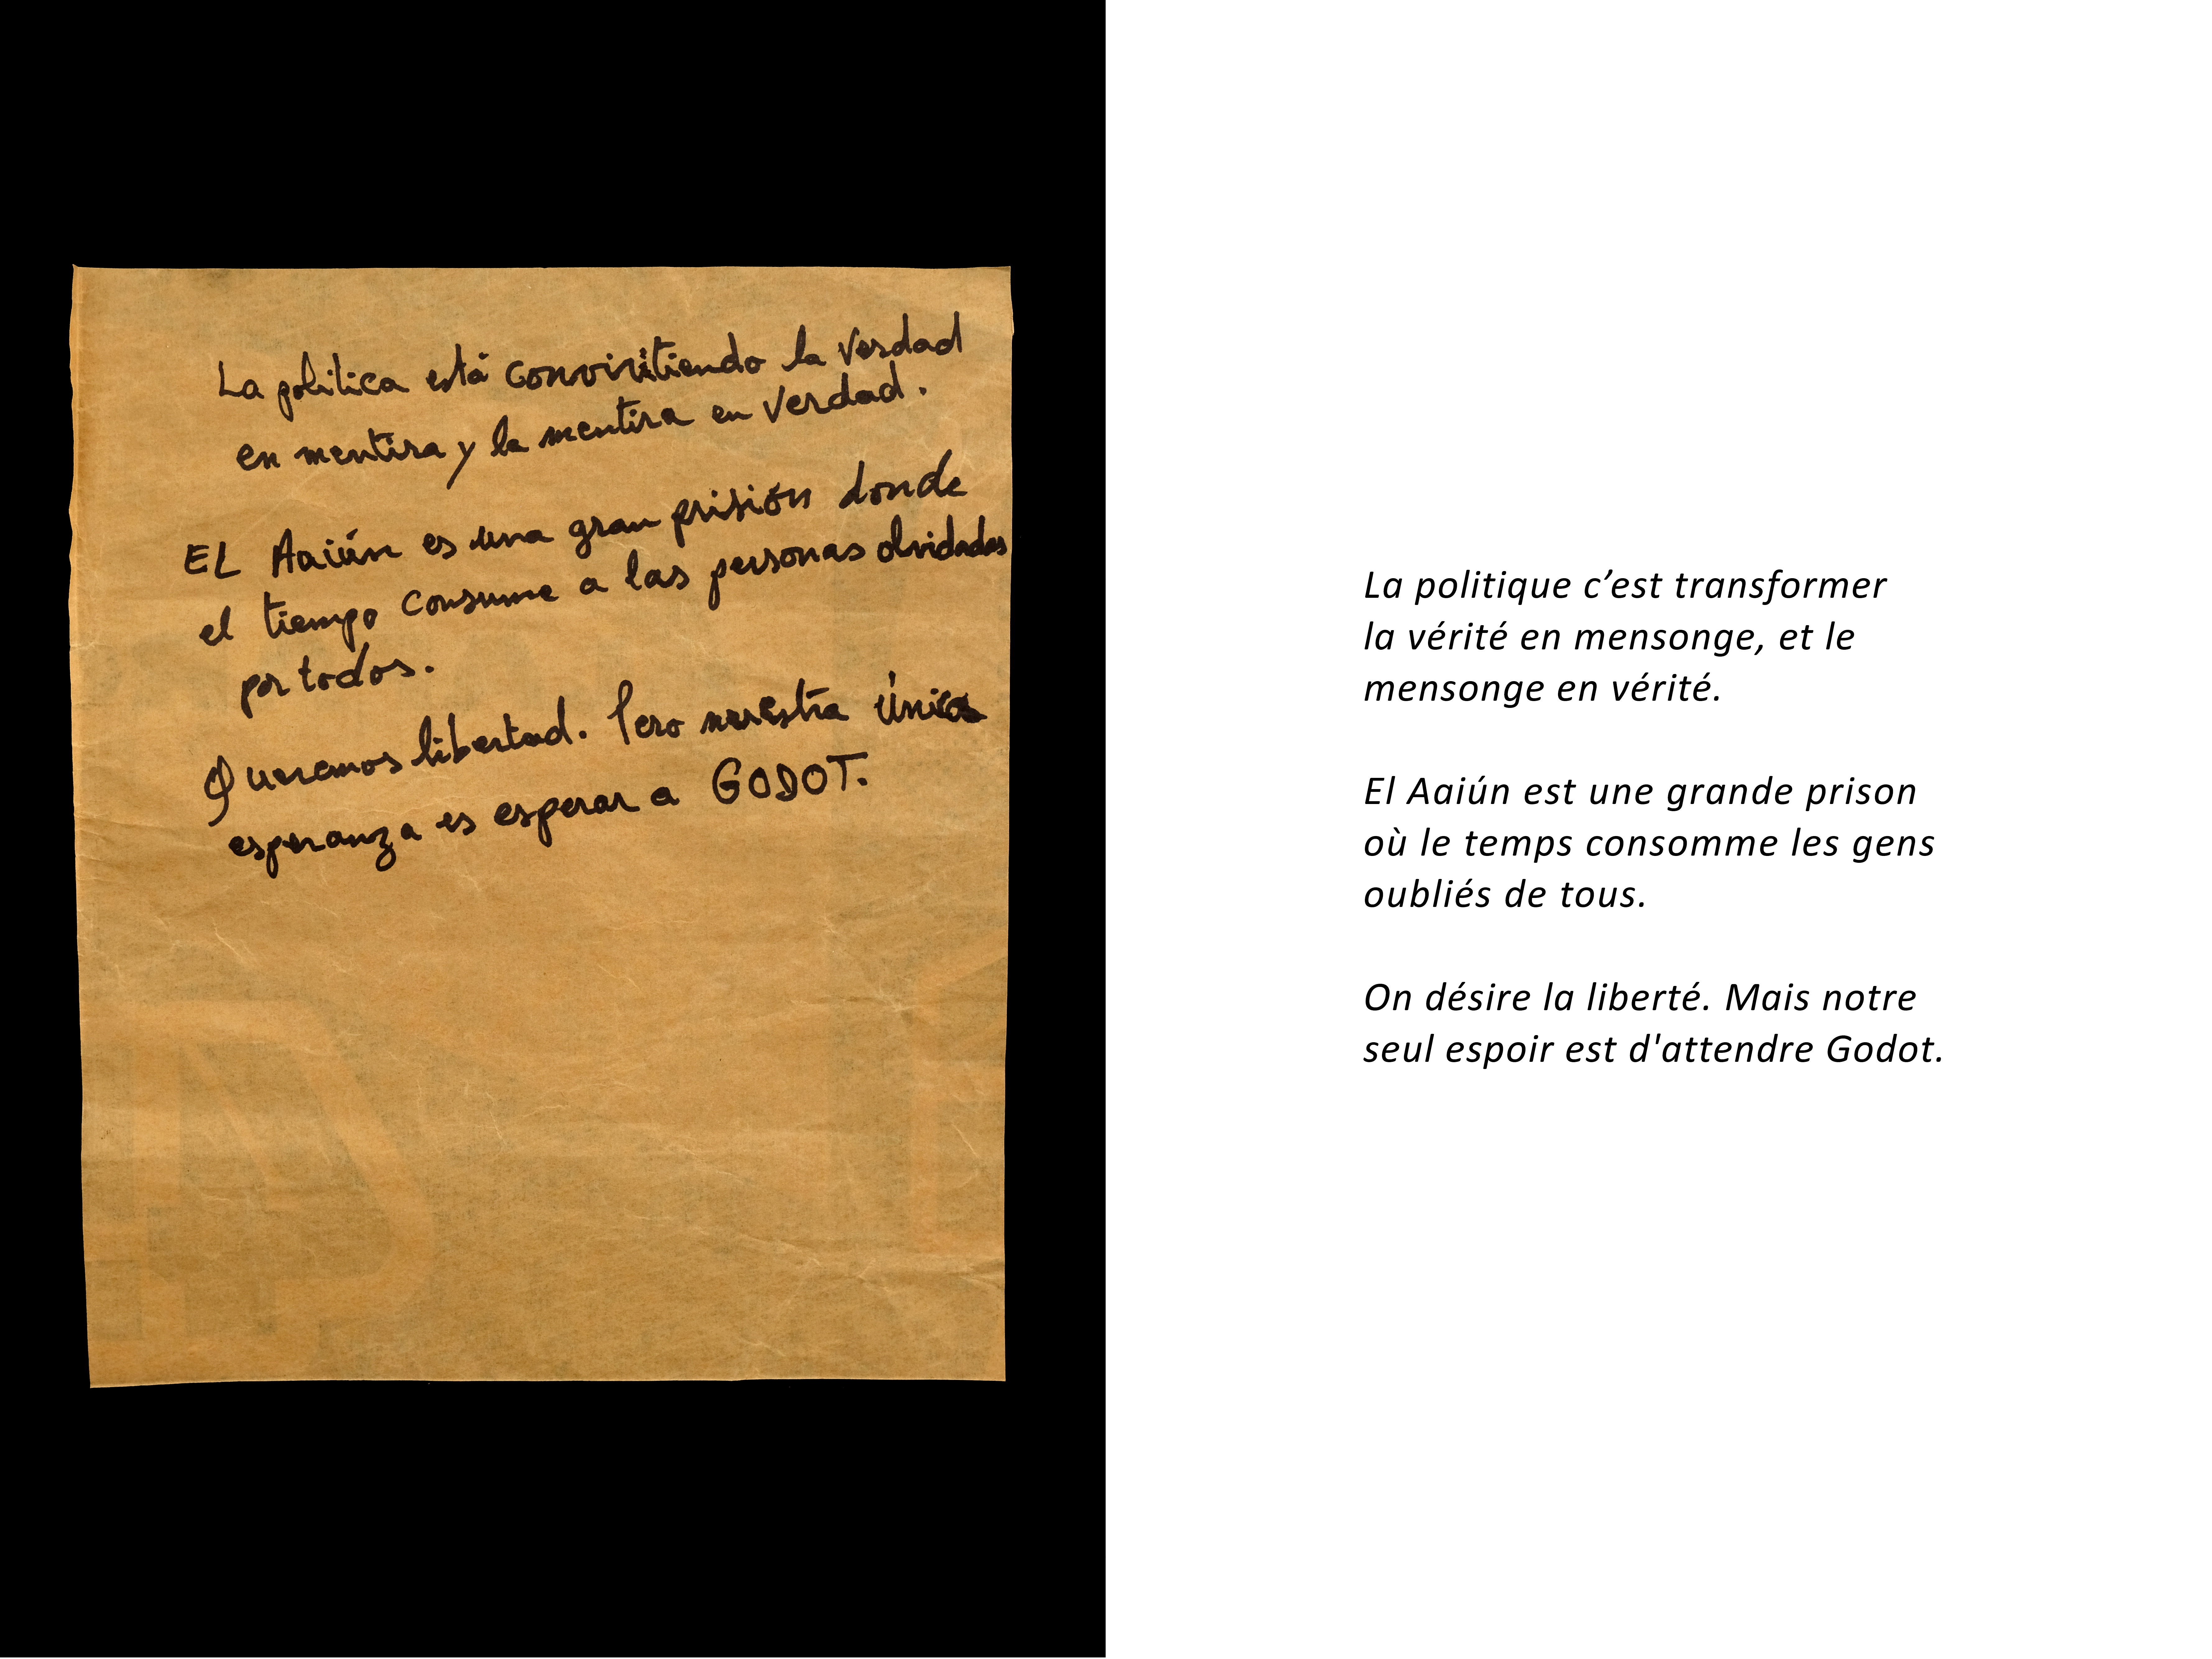 La política está conviritiendo la verdad
en mentira y la mentira en verdad.
EL Aaiún es una gran prisión donde
el tiempo consume a las personas olvidadas
por todos.
Queremos libertad. Pero nuestra única
esperanza es esperar a GODOT.
La politique c’est transformer
la vérité en mensonge, et le
mensonge en vérité.
El Aaiún est une grande prison
où le temps consomme les gens
oubliés de tous.
On désire la liberté. Mais notre
seul espoir est d'attendre Godot.